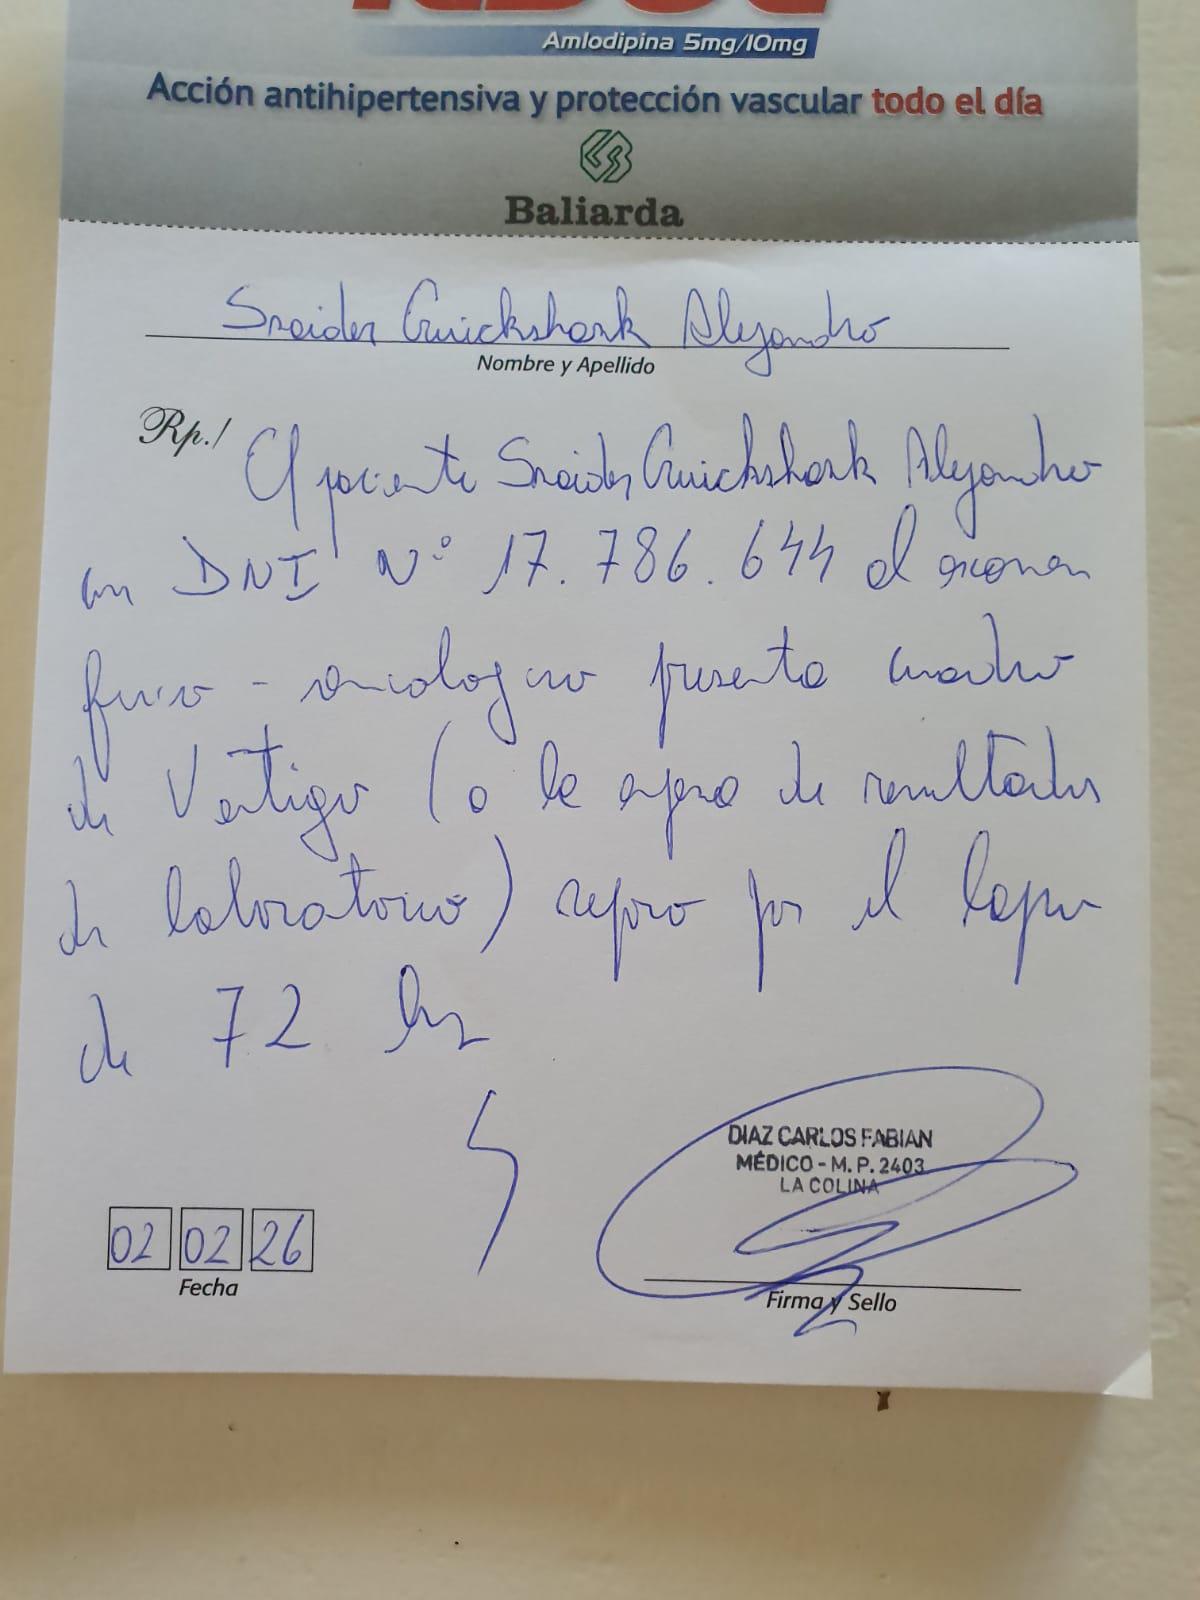 Amlodipina 5mg/10mg
Acción antihipertensiva y protección vascular todo el día
Baliarda
Snaider Cruickshank Alejandro
Nombre y Apellido
Rp./
El paciente Snaider Cruickshank Alejandro
con DNI Nº 17.786.644 al examen
fisico - semiologico presenta cuadro
de Vertigo (a la espera de resultados
de laboratorio) reposo por el lapso
de 72 hs
DIAZ CARLOS FABIAN
MÉDICO - M. P. 2403
LA COLINA
02 02 26
Fecha
Firma y Sello